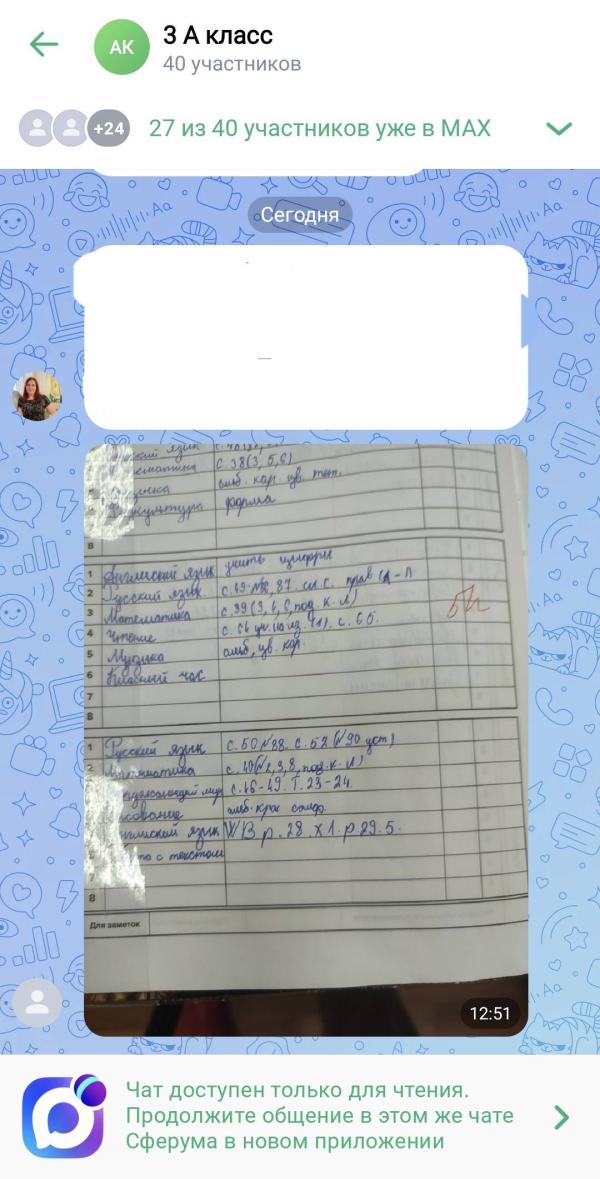 3 А класс
АК
40 участников
+24
27 из 40 участников уже в MAX
Сегодня
с. 38 (3, 5, 6)
альб. кар. цв.
форма
8
1 Английский язык учить цифры
2 Русский язык. с. 49 №86, 87. сл. с.
3 Математика с. 39 (3, 4, 6, под. к. л)
4 Чтение
5 Музыка альб, цв. кар.
6 Классный час
7
8
1 Русский язык с. 50 №88. с. 52 (№90 уст)
2 Математика с. 40 (№2, 3, 8, под. к. л)
с. 46-49. Т. 23-24.
альб. крас салф.
язык WB p. 28. X1. p. 29. 5.
с текстом
7
8
Для заметок
12:51
Чат доступен только для чтения.
Продолжите общение в этом же чате
Сферума в новом приложении